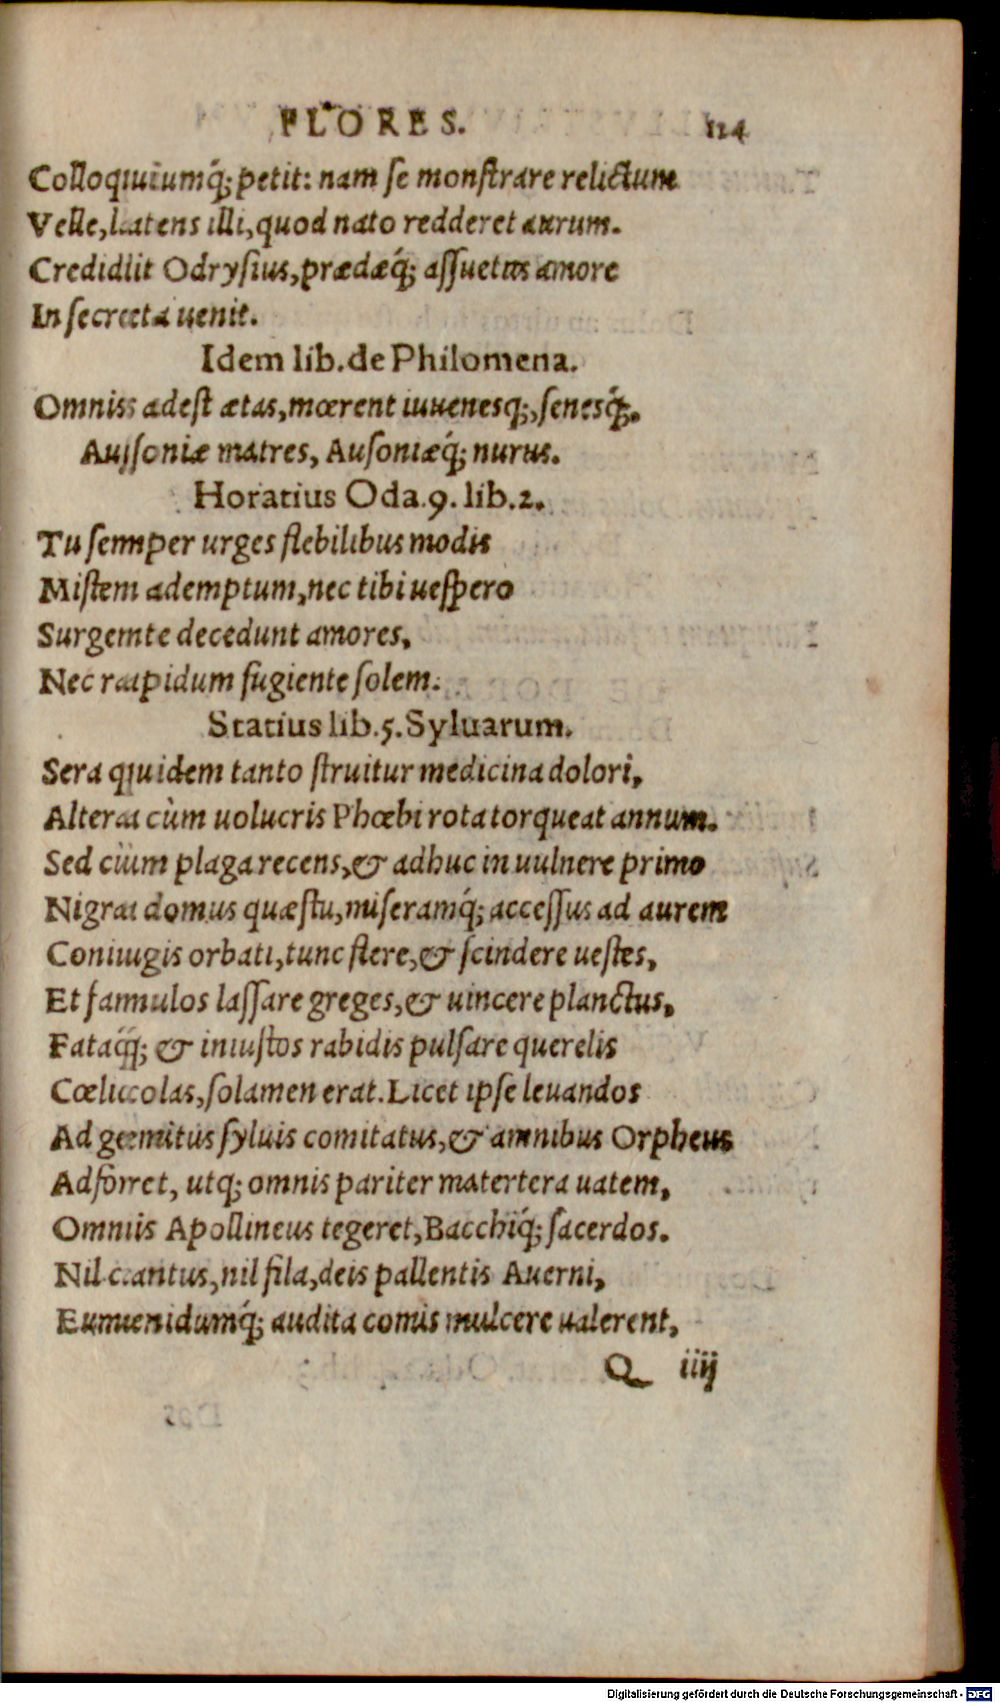 FLORES. 124
Colloquiumq́; petit: nam se monstrare relictum
Velle, latens illi, quod nato redderet aurum.
Credidit Odrysius, prædæq́; assuetus amore
In secreta uenit.
Idem lib. de Philomena.
Omnis adest ætas, mœrent iuuenesq;, senesq́;.
Ausoniæ matres, Ausoniæq́; nurus.
Horatius Oda. 9. lib. 2.
Tu semper urges flebilibus modis
Mistem ademptum, nec tibi uespero
Surgente decedunt amores,
Nec rapidum fugiente solem.
Statius lib. 5. Syluarum.
Sera quidem tanto struitur medicina dolori,
Altera cùm uolucris Phœbi rota torqueat annum.
Sed cùm plaga recens, & adhuc in uulnere primo
Nigra domus quæstu, miseramq́; accessus ad aurem
Coniugis orbati, tunc flere, & scindere uestes,
Et famulos lassare greges, & uincere planctus,
Fataq́; & iniustos rabidis pulsare querelis
Cœlicolas, solamen erat. Licet ipse leuandos
Ad gemitus syluis comitatus, & amnibus Orpheus
Adforet, utq; omnis pariter matertera uatem,
Omnis Apollineus tegeret, Bacchiq́; sacerdos.
Nil cantus, nil fila, deis pallentis Auerni,
Eumenidumq́; audita comis mulcere ualerent,
Q iiij
Digitalisierung gefördert durch die Deutsche Forschungsgemeinschaft - DFG